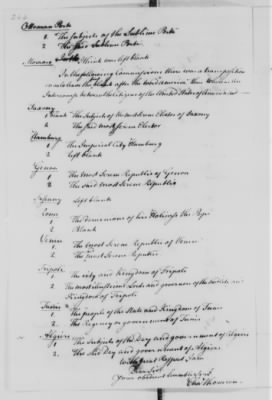 Ottoman Porte
1 The Subjects of the Sublime Porte
2 The said Sublime Porte
Morocco think was left blank
In the following Commissions there was a transposition
the blank after the word America thus between the
Intercourse between the Citizens of the United States of America
Saxony
1 blank The Subjects of the most Serene Elector of Saxony
2 The said most Serene Elector
Hamburg
1 The Imperial City Hamburg
2 left blank
Genoa
1 The most Serene Republic of Genoa
2 The said most Serene Republic
left blank
Rome
1 The dominions of his Holiness the Pope
2 Blank
Venice
1 The most Serene Republic of Venice
2 The said Serene Republic
Tripoli
1 The city and Kingdom of Tripoli
2 The most illustrious Lords and governors of the
Kingdom of Tripoli
Tunis
1 the people of the State and Kingdom of Tunis
2 The Regency or government of Tunis
Algiers
1 The Subjects of the Dey and government of Algiers
2 The Said Dey and government of Algiers
With great Respect I am
Dear Sir
Your obedient humble Servt
Chas Thomson